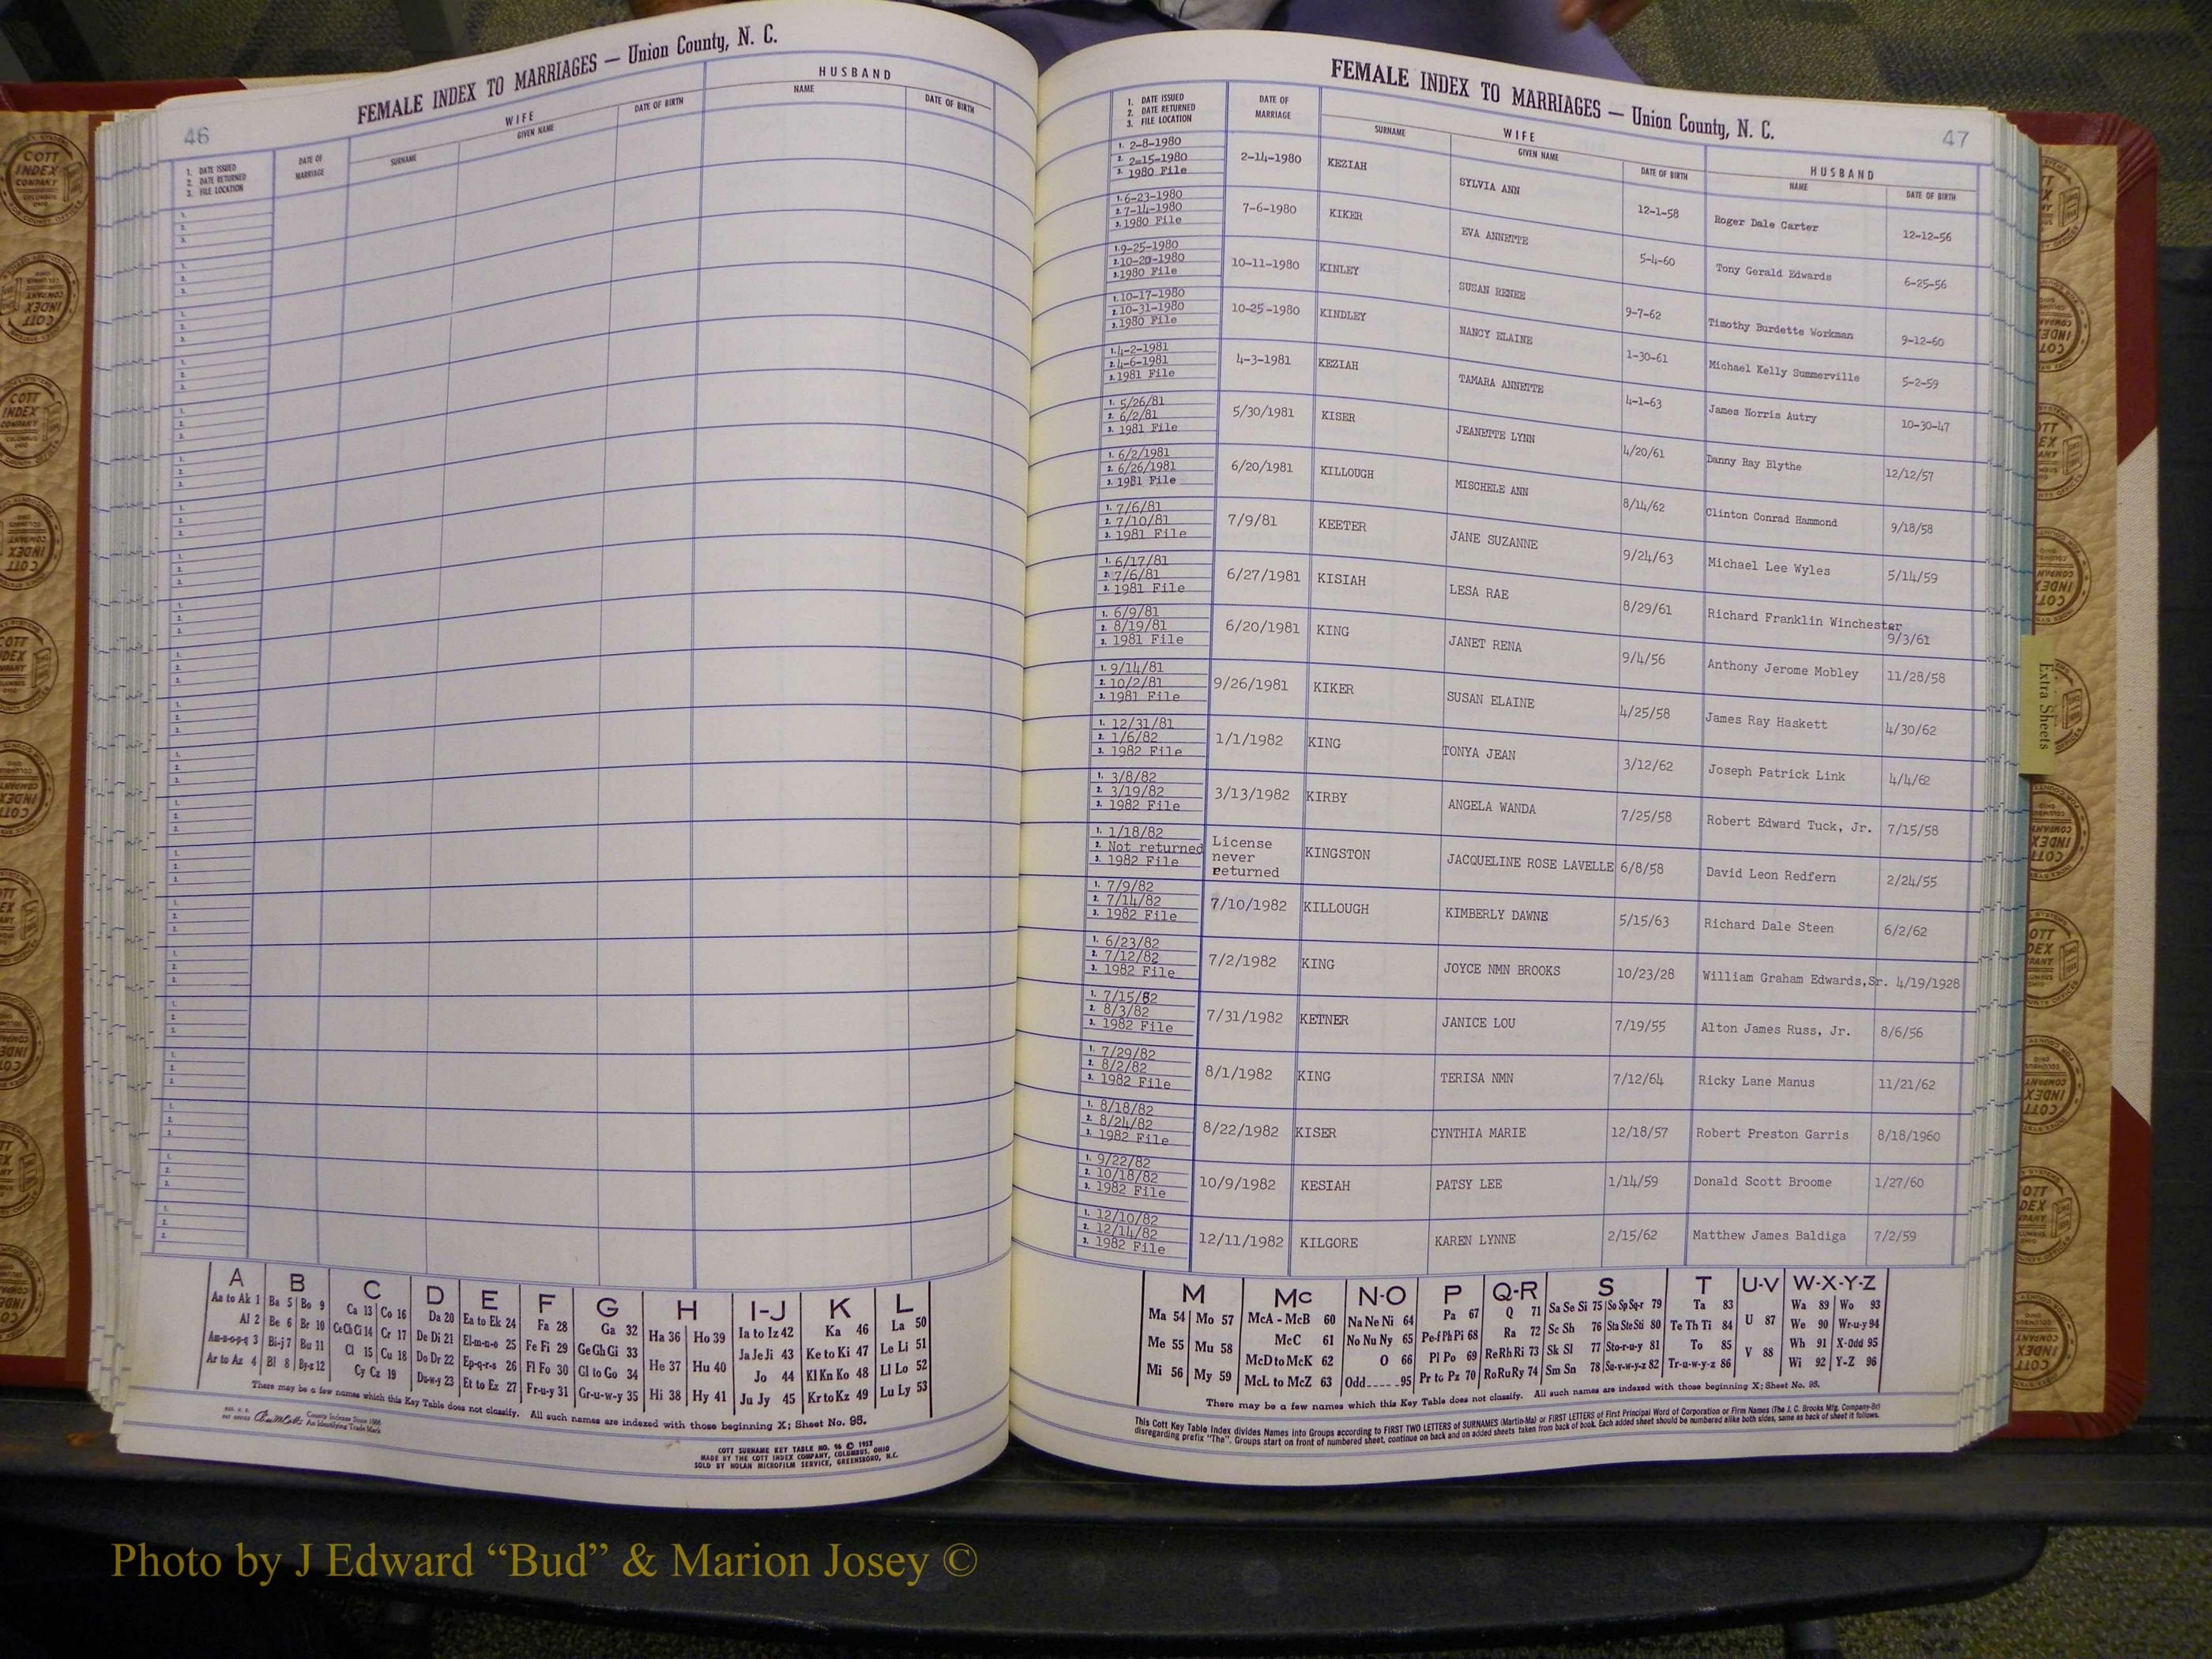 46
FEMALE INDEX TO MARRIAGES — Union County, N. C.
1. DATE ISSUED
2. DATE RETURNED
3. FILE LOCATION
DATE OF MARRIAGE
WIFE
SURNAME
GIVEN NAME
DATE OF BIRTH
HUSBAND
NAME
DATE OF BIRTH
A B C D E F G H I-J K L
Aa to Ak 1 Ba 5 Bo 9 Ca 13 Co 16 Da 20 Ea to Ek 24 Fa 28 Ga 32 Ha 36 Ho 39 Ia to Iz 42 Ka 46 La 50
Al 2 Be 6 Br 10 Ce Ch Ci 14 Cr 17 De Di 21 El-m-n-o 25 Fe Fi 29 Ge Gh Gi 33 Ja Je Ji 43 Ke to Ki 47 Le Li 51
Am-n-o-p-q 3 Bi-j 7 Bu 11 Cl 15 Cu 18 Do Dr 22 Ep-q-r-s 26 Fl Fo 30 Gl to Go 34 He 37 Hu 40 Jo 44 Kl Kn Ko 48 Ll Lo 52
Ar to Az 4 Bl 8 By-z 12 Cy Cz 19 Du-w-y 23 Et to Ez 27 Fr-u-y 31 Gr-u-w-y 35 Hi 38 Hy 41 Ju Jy 45 Kr to Kz 49 Lu Ly 53
There may be a few names which this Key Table does not classify. All such names are indexed with those beginning X; Sheet No. 95.
County Indexes Since 1888
An Identifying Trade Mark
COTT SURNAME KEY TABLE NO. 96 © 1952
MADE BY THE COTT INDEX COMPANY, COLUMBUS, OHIO
SOLD BY NOLAN MICROFILM SERVICE, GREENSBORO, N.C.
FEMALE INDEX TO MARRIAGES — Union County, N. C.
47
1. DATE ISSUED
2. DATE RETURNED
3. FILE LOCATION
DATE OF MARRIAGE
WIFE
SURNAME
GIVEN NAME
DATE OF BIRTH
HUSBAND
NAME
DATE OF BIRTH
1. 2-8-1980
2. 2-15-1980
3. 1980 File
2-14-1980 KEZIAH SYLVIA ANN 12-1-58 Roger Dale Carter 12-12-56
1. 6-23-1980
2. 7-14-1980
3. 1980 File
7-6-1980 KIKER EVA ANNETTE 5-4-60 Tony Gerald Edwards 6-25-56
1. 9-25-1980
2. 10-20-1980
3. 1980 File
10-11-1980 KINLEY SUSAN RENEE 9-7-62 Timothy Burdette Workman 9-12-60
1. 10-17-1980
2. 10-31-1980
3. 1980 File
10-25-1980 KINDLEY NANCY ELAINE 1-30-61 Michael Kelly Summerville 5-2-59
1. 4-2-1981
2. 4-6-1981
3. 1981 File
4-3-1981 KEZIAH TAMARA ANNETTE 4-1-63 James Norris Autry 10-30-47
1. 5/26/81
2. 6/2/81
3. 1981 File
5/30/1981 KISER JEANETTE LYNN 4/20/61 Danny Ray Blythe 12/12/57
1. 6/2/1981
2. 6/26/1981
3. 1981 File
6/20/1981 KILLOUGH MISCHELE ANN 8/14/62 Clinton Conrad Hammond 9/18/58
1. 7/6/81
2. 7/10/81
3. 1981 File
7/9/81 KEETER JANE SUZANNE 9/24/63 Michael Lee Wyles 5/14/59
1. 6/17/81
2. 7/6/81
3. 1981 File
6/27/1981 KISIAH LESA RAE 8/29/61 Richard Franklin Winchester 9/3/61
1. 6/9/81
2. 8/19/81
3. 1981 File
6/20/1981 KING JANET RENA 9/4/56 Anthony Jerome Mobley 11/28/58
1. 9/14/81
2. 10/2/81
3. 1981 File
9/26/1981 KIKER SUSAN ELAINE 4/25/58 James Ray Haskett 4/30/62
1. 12/31/81
2. 1/6/82
3. 1982 File
1/1/1982 KING TONYA JEAN 3/12/62 Joseph Patrick Link 4/4/62
1. 3/8/82
2. 3/19/82
3. 1982 File
3/13/1982 KIRBY ANGELA WANDA 7/25/58 Robert Edward Tuck, Jr. 7/15/58
1. 1/18/82
2. Not returned
3. 1982 File
License never returned KINGSTON JACQUELINE ROSE LAVELLE 6/8/58 David Leon Redfern 2/24/55
1. 7/9/82
2. 7/14/82
3. 1982 File
7/10/1982 KILLOUGH KIMBERLY DAWNE 5/15/63 Richard Dale Steen 6/2/62
1. 6/23/82
2. 7/12/82
3. 1982 File
7/2/1982 KING JOYCE NMN BROOKS 10/23/28 William Graham Edwards,Sr. 4/19/1928
1. 7/15/82
2. 8/3/82
3. 1982 File
7/31/1982 KETNER JANICE LOU 7/19/55 Alton James Russ, Jr. 8/6/56
1. 7/29/82
2. 8/2/82
3. 1982 File
8/1/1982 KING TERISA NMN 7/12/64 Ricky Lane Manus 11/21/62
1. 8/18/82
2. 8/24/82
3. 1982 File
8/22/1982 KISER CYNTHIA MARIE 12/18/57 Robert Preston Garris 8/18/1960
1. 9/22/82
2. 10/18/82
3. 1982 File
10/9/1982 KESIAH PATSY LEE 1/14/59 Donald Scott Broome 1/27/60
1. 12/10/82
2. 12/14/82
3. 1982 File
12/11/1982 KILGORE KAREN LYNNE 2/15/62 Matthew James Baldiga 7/2/59
Extra Sheets
M Mc N-O P Q-R S T U-V W-X-Y-Z
Ma 54 Mo 57 McA - McB 60 Na Ne Ni 64 Pa 67 Q 71 Sa Se Si 75 So Sp Sq-r 79 Ta 83 U 87 Wa 89 Wo 93
Me 55 Mu 58 McC 61 No Nu Ny 65 Pe-f Ph Pi 68 Ra 72 Sc Sh 76 Sta Ste Sti 80 Te Th Ti 84 We 90 Wr-u-y 94
Mi 56 My 59 McD to McK 62 O 66 Pl Po 69 Re Rh Ri 73 Sk Sl 77 Sto-r-u-y 81 To 85 V 88 Wh 91 X-Odd 95
McL to McZ 63 Odd 95 Pr to Pz 70 Ro Ru Ry 74 Sm Sn 78 Su-v-w-y-z 82 Tr-u-w-y-z 86 Wi 92 Y-Z 96
There may be a few names which this Key Table does not classify. All such names are indexed with those beginning X; Sheet No. 95.
This Cott Key Table Index divides Names into Groups according to FIRST TWO LETTERS of SURNAMES (Martin-Ma) or FIRST LETTERS of First Principal Word of Corporation or Firm Names (The J. C. Brooks Mfg. Company-Br)
disregarding prefix "The". Groups start on front of numbered sheet, continue on back and on added sheets taken from back of book. Each added sheet should be numbered alike both sides, same as back of sheet it follows.
Photo by J Edward “Bud” & Marion Josey ©